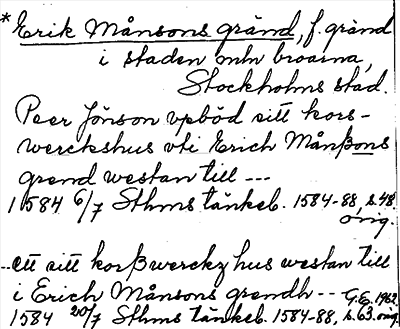 * Erik Månsons gränd, f. gränd
i staden mln broarna,
Stockholms stad.
Peer Jönson vpböd sitt kors-
werckshus vti Erich Månßons
grend westan till ---
1584 6/7 Sthms tänkeb. 1584-88, s. 48
orig.
.. ett sitt korßwerckz hus westan till
i Erich Månsons grendh -- G.E. 1962
1584 20/7 Sthms tänkeb. 1584-88, s. 63. orig.